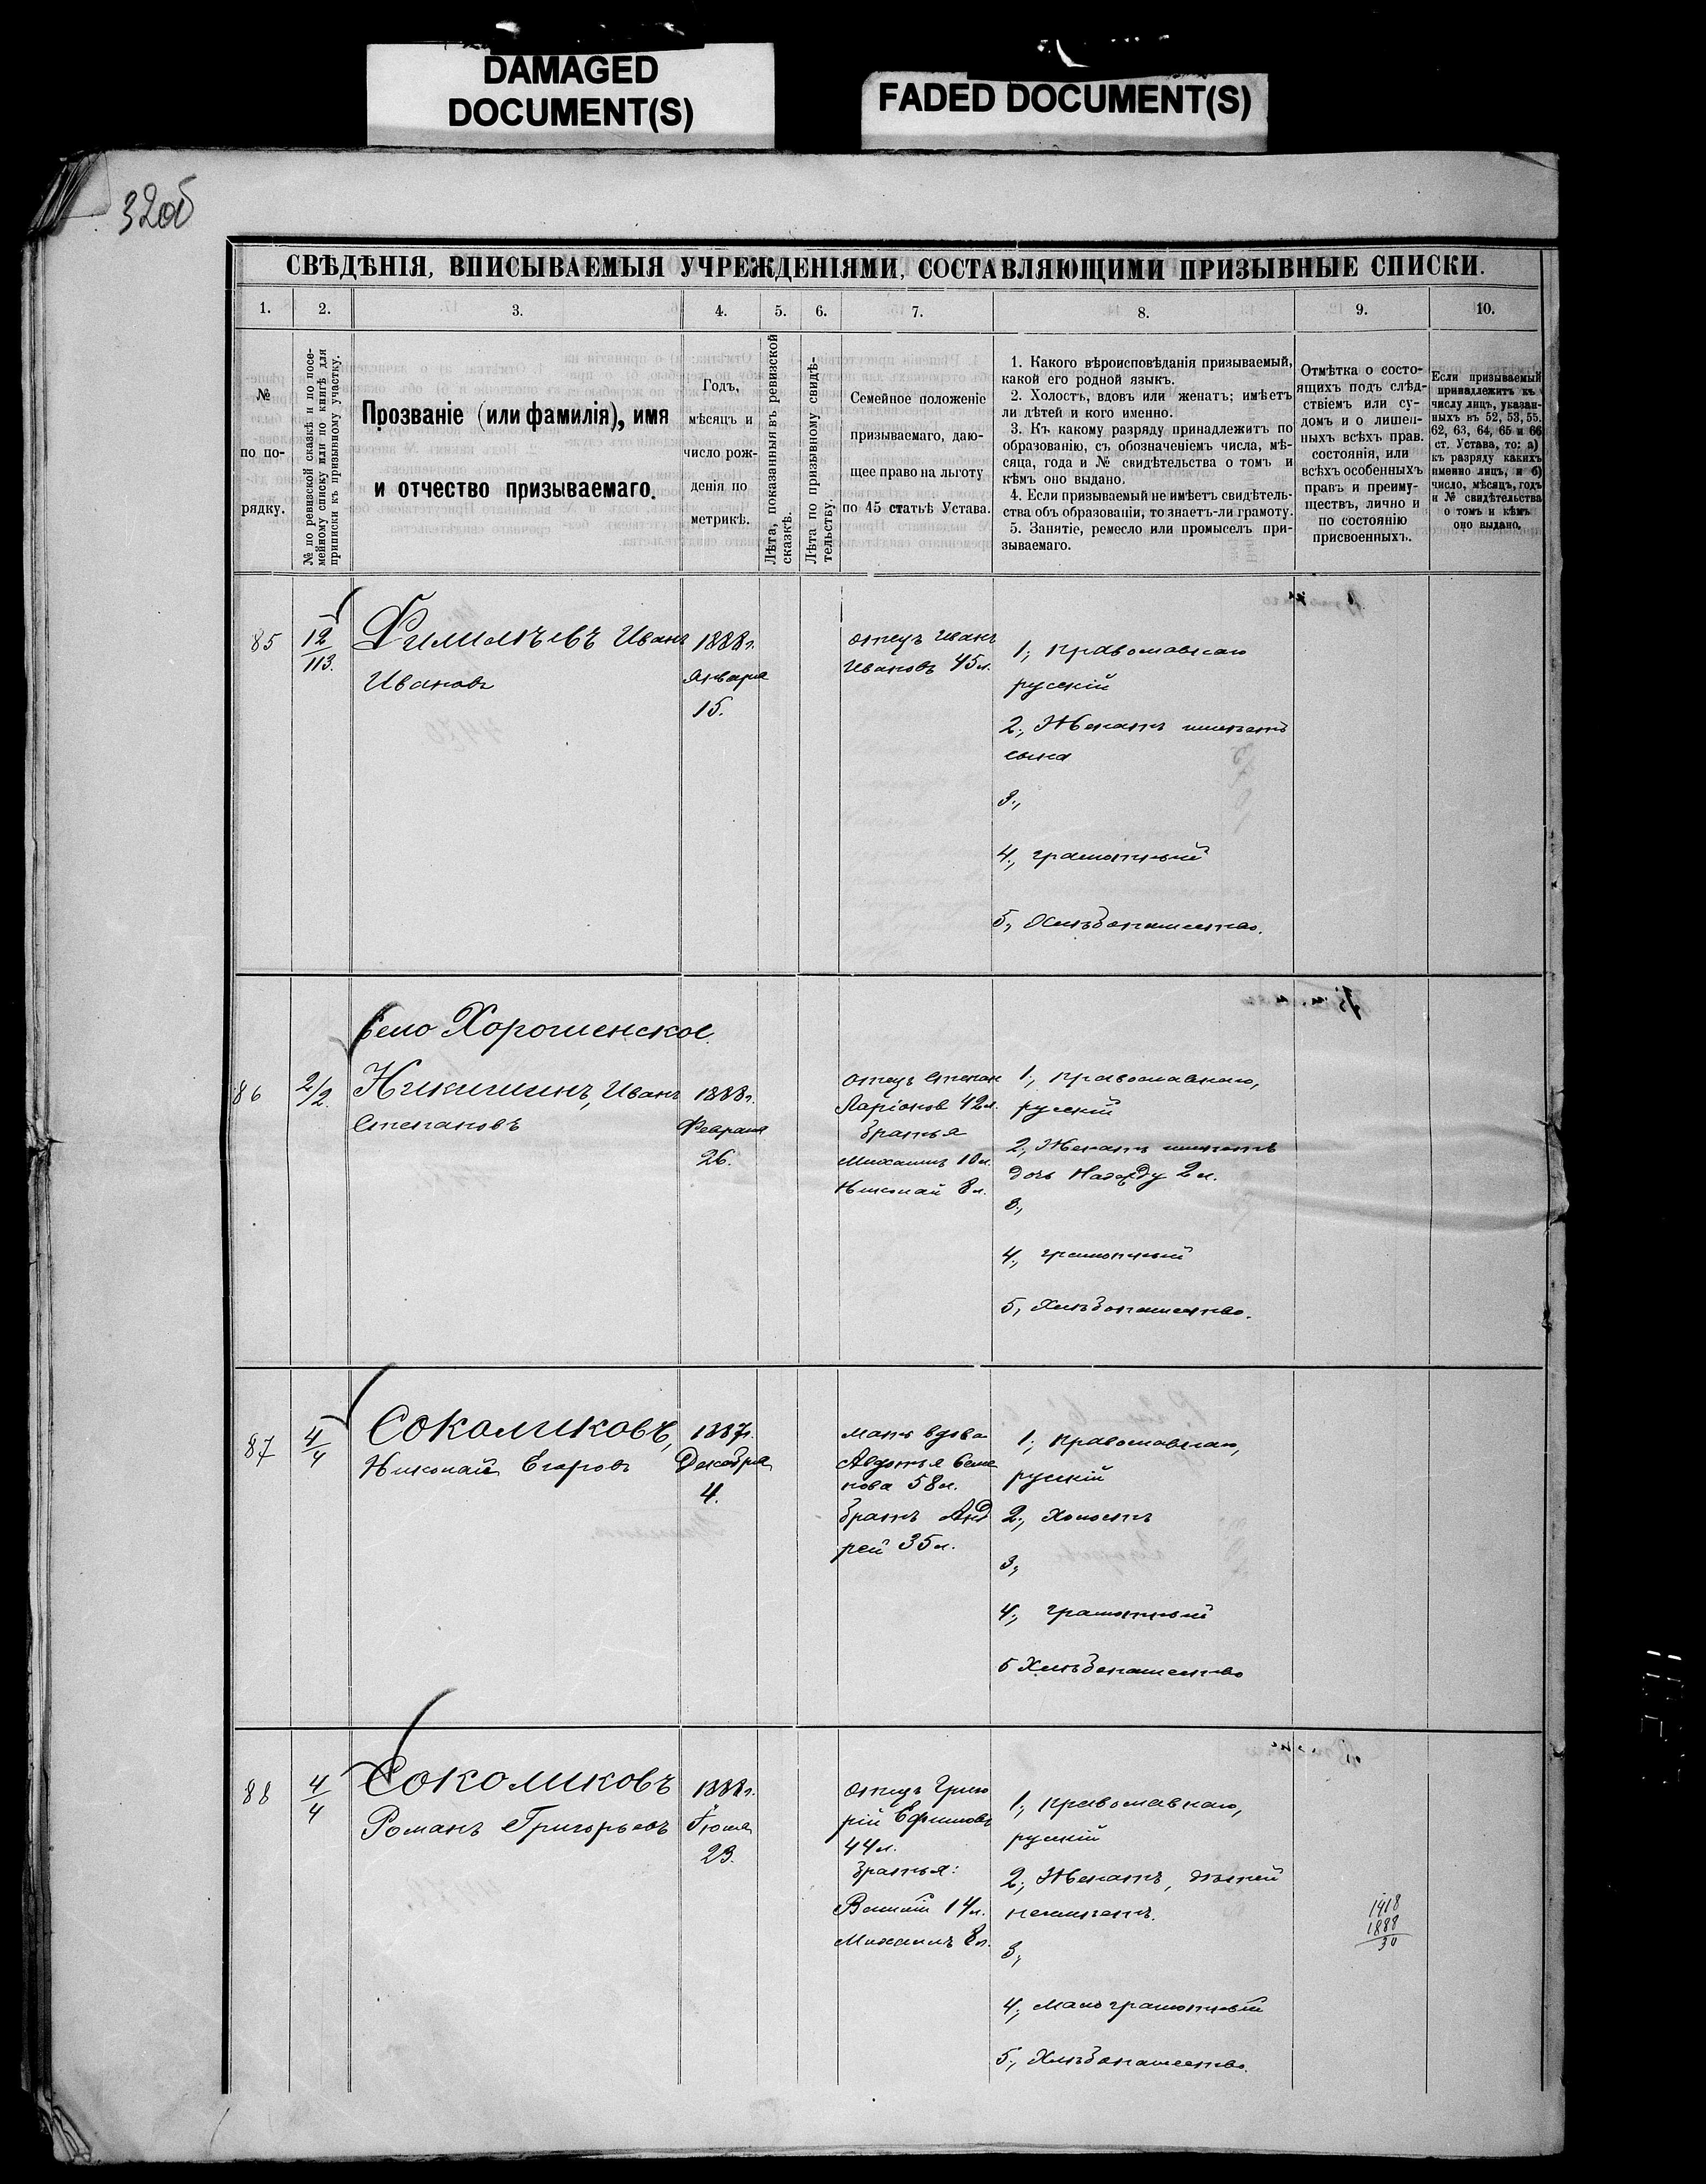 DAMAGED
DOCUMENT(S)
FADED DOCUMENT(S)
32об
СВѢДѢНІЯ, ВПИСЫВАЕМЫЯ УЧРЕЖДЕНІЯМИ, СОСТАВЛЯЮЩИМИ ПРИЗЫВНЫЕ СПИСКИ.
1. 2. 3. 4. 5. 6. 7. 8. 9. 10.
№
по по-
рядку.
№ по ревизской сказкѣ и по посе-
мейному списку или по книгѣ для
приписки къ призывному участку.
Прозваніе (или фамилія), имя
и отчество призываемаго.
Годъ,
мѣсяцъ и
число рож-
денія по
метрикѣ.
Лѣта, показанныя въ ревизской
сказкѣ.
Лѣта по призывному свидѣ-
тельству.
Семейное положеніе
призываемаго, даю-
щее право на льготу
по 45 статьѣ Устава.
1. Какого вѣроисповѣданія призываемый,
какой его родной языкъ.
2. Холостъ, вдовъ или женатъ; имѣетъ
ли дѣтей и кого именно.
3. Къ какому разряду принадлежитъ по
образованію, съ обозначеніемъ числа, мѣ-
сяца, года и № свидѣтельства о томъ и
кѣмъ оно выдано.
4. Если призываемый не имѣетъ свидѣтель-
ства объ образованіи, то знаетъ-ли грамоту.
5. Занятіе, ремесло или промыселъ при-
зываемаго.
Отмѣтка о состо-
ящихъ подъ слѣд-
ствіемъ или су-
домъ и о лишен-
ныхъ всѣхъ прав.
состоянія, или
всѣхъ особенныхъ
правъ и преиму-
ществъ, лично и
по состоянію
присвоенныхъ.
Если призываемый
принадлежитъ къ
числу лицъ, указан-
ныхъ въ 52, 53, 55,
62, 63, 64, 65 и 66
ст. Устава, то: а)
къ разряду какихъ
именно лицъ, и б)
число, мѣсяцъ, годъ
и № свидѣтельства
о томъ и кѣмъ
оно выдано.
85
12
113.
Филипьевъ Иванъ
Ивановъ
1888г.
Января
15.
отецъ Иванъ
Ивановъ 45л.
1; православнаго
русскій
2; Женатъ имѣетъ
сына
3.,
4., грамотный
5, Хлѣбопашество.
Село Хорошенское.
86
2/2.
Никишинъ, Иванъ
Степановъ
1888г.
Февраля
26.
отецъ Степан
Ларіонов 42л.
братья
Михаилъ 10л.
Николай 8л.
1; православнаго,
русскій
2; Женатъ имѣетъ
дочь Надежду 2л.
3.,
4., грамотный
5, Хлѣбопашество.
87
4
4
Соколиковъ,
Николай Егоровъ
1887г.
Декабря
4.
мать вдова
Авдотья Семе
нова 58л.
братъ Анд
рей 35л.
1; православнаго,
русскій
2., Холостъ
3,
4., грамотный
5 Хлѣбопашество
88
4
4
Соколиковъ
Романъ Григорьевъ
1888г.
Іюля
23.
отецъ Григо
рій Ефимовъ
44л.
братья:
Василій 14л.
Михаилъ 8л.
1; православнаго,
русскій
2; Женатъ, дѣтей
неимѣетъ.
3;
4; малограмотный
5., Хлѣбопашество.
1918
1888
30